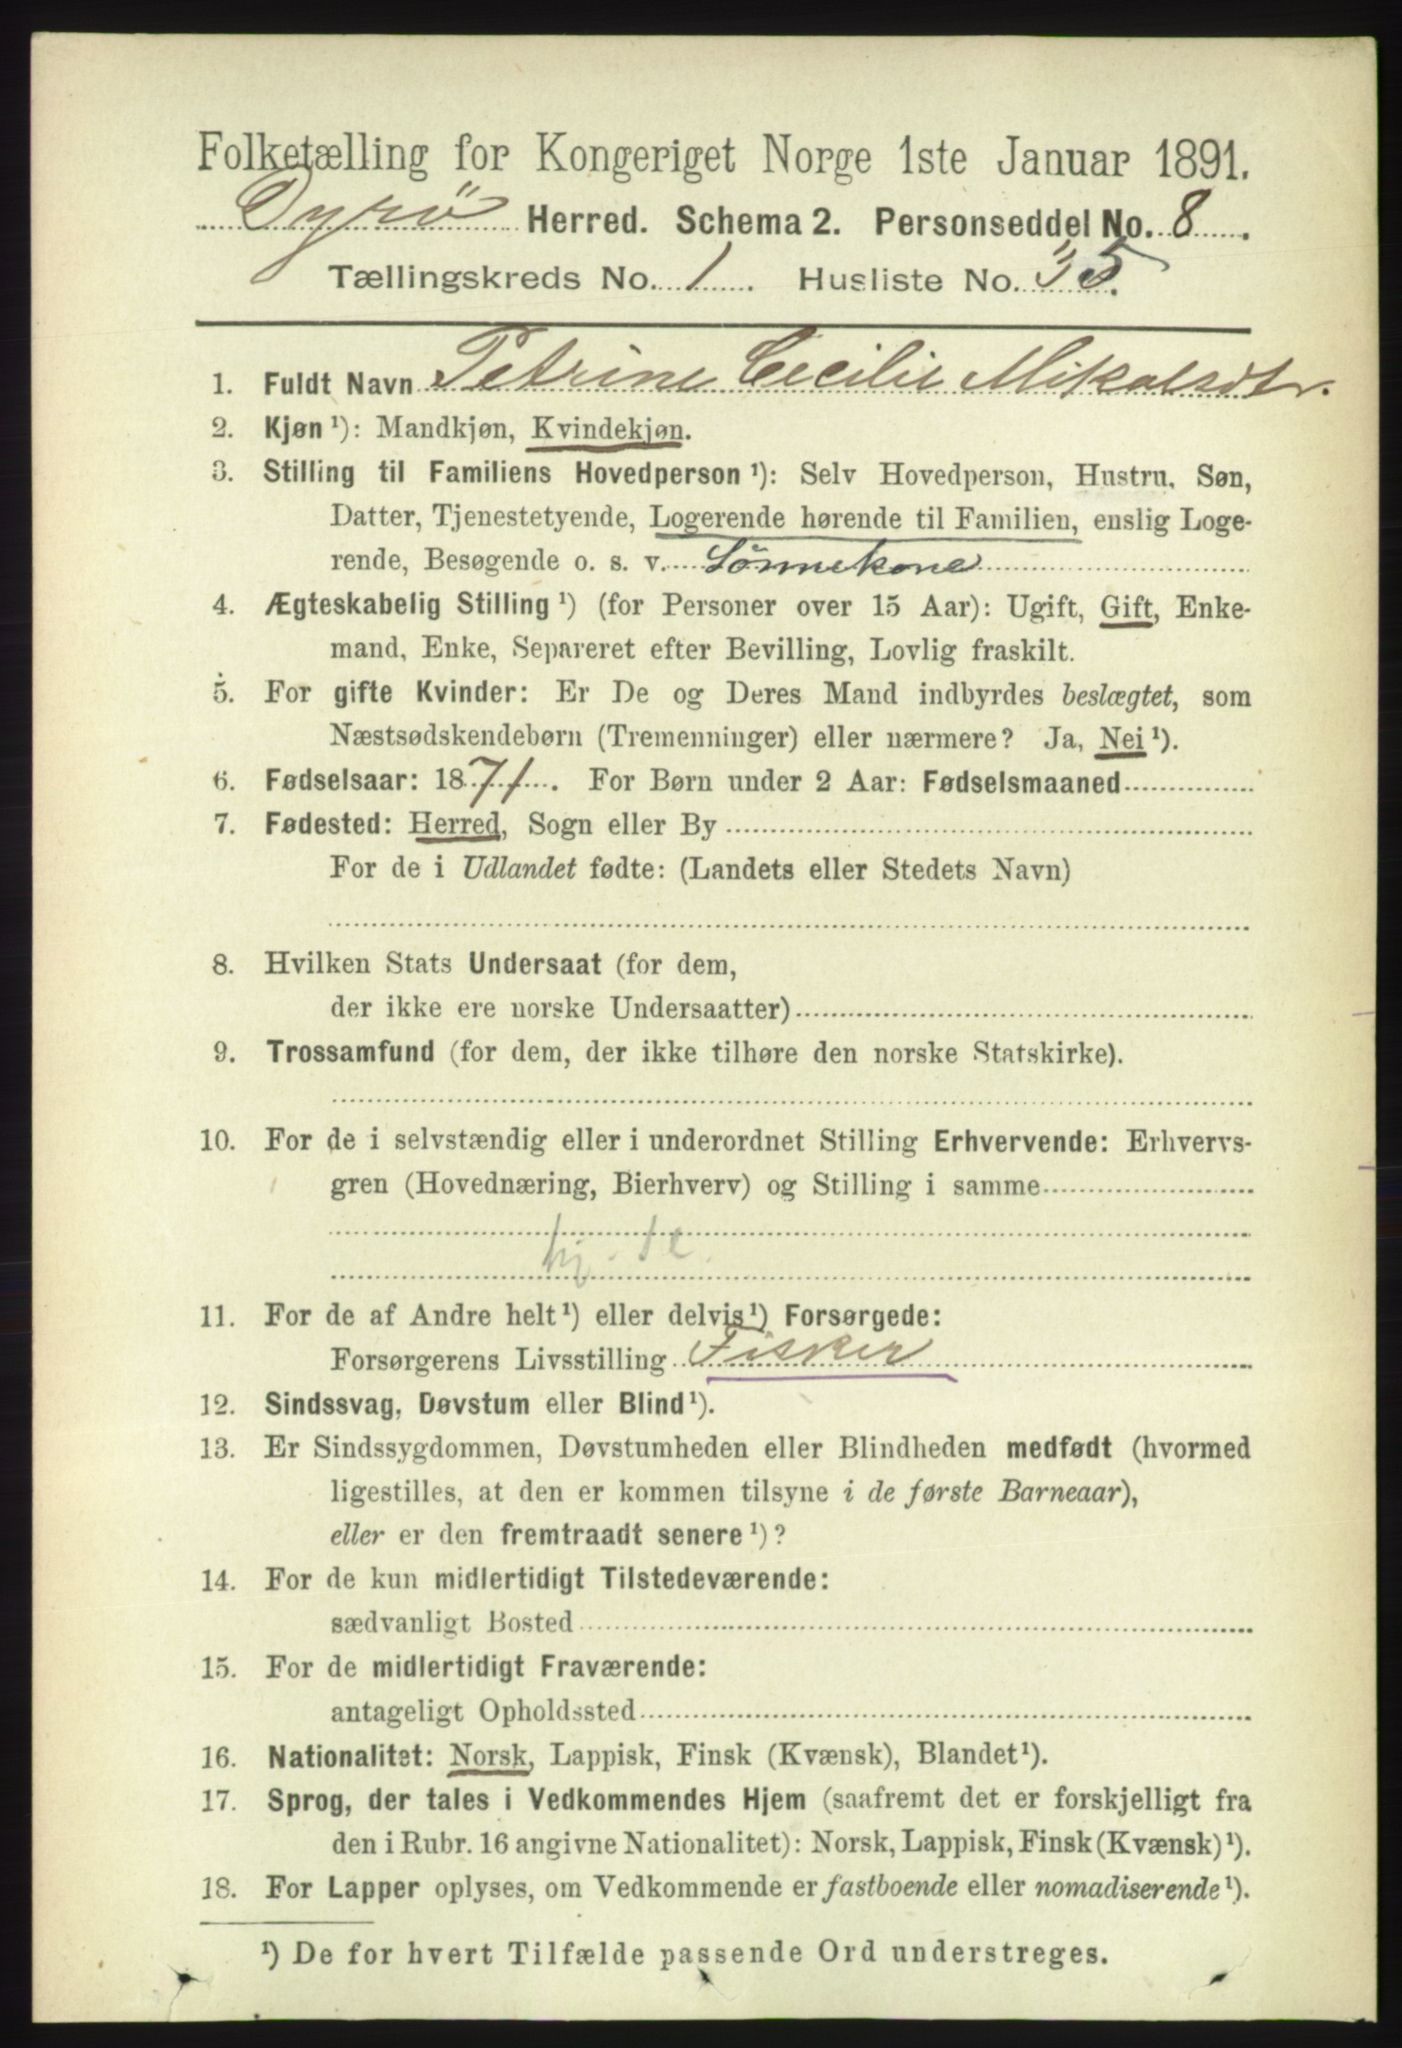 Folketælling for Kongeriget Norge 1ste Januar 1891.
Dyrö Herred. Schema 2. Personseddel No. 8.
Tællingskreds No. 1. Husliste No. 35.
1. Fuldt Navn Petrine Cecilie Mikalsdtr.
2. Kjøn ¹): Mandkjøn, Kvindekjøn.
3. Stilling til Familiens Hovedperson ¹): Selv Hovedperson, Hustru, Søn,
Datter, Tjenestetyende, Logerende hørende til Familien, enslig Loge-
rende, Besøgende o. s. v. Sönnekone
4. Ægteskabelig Stilling ¹) (for Personer over 15 Aar): Ugift, Gift, Enke-
mand, Enke, Separeret efter Bevilling, Lovlig fraskilt.
5. For gifte Kvinder: Er De og Deres Mand indbyrdes beslægtet, som
Næstsødskendebørn (Tremenninger) eller nærmere? Ja, Nei ¹).
6. Fødselsaar: 1871. For Børn under 2 Aar: Fødselsmaaned
7. Fødested: Herred, Sogn eller By
For de i Udlandet fødte: (Landets eller Stedets Navn)
8. Hvilken Stats Undersaat (for dem,
der ikke ere norske Undersaatter)
9. Trossamfund (for dem, der ikke tilhøre den norske Statskirke).
10. For de i selvstændig eller i underordnet Stilling Erhvervende: Erhvervs-
gren (Hovednæring, Bierhverv) og Stilling i samme
11. For de af Andre helt ¹) eller delvis ¹) Forsørgede:
Forsørgerens Livsstilling Fisker
12. Sindssvag, Døvstum eller Blind ¹).
13. Er Sindssygdommen, Døvstumheden eller Blindheden medfødt (hvormed
ligestilles, at den er kommen tilsyne i de første Barneaar),
eller er den fremtraadt senere ¹)?
14. For de kun midlertidigt Tilstedeværende:
sædvanligt Bosted
15. For de midlertidigt Fraværende:
antageligt Opholdssted
16. Nationalitet: Norsk, Lappisk, Finsk (Kvænsk), Blandet ¹).
17. Sprog, der tales i Vedkommendes Hjem (saafremt det er forskjelligt fra
den i Rubr. 16 angivne Nationalitet): Norsk, Lappisk, Finsk (Kvænsk) ¹).
18. For Lapper oplyses, om Vedkommende er fastboende eller nomadiserende ¹).
¹) De for hvert Tilfælde passende Ord understreges.